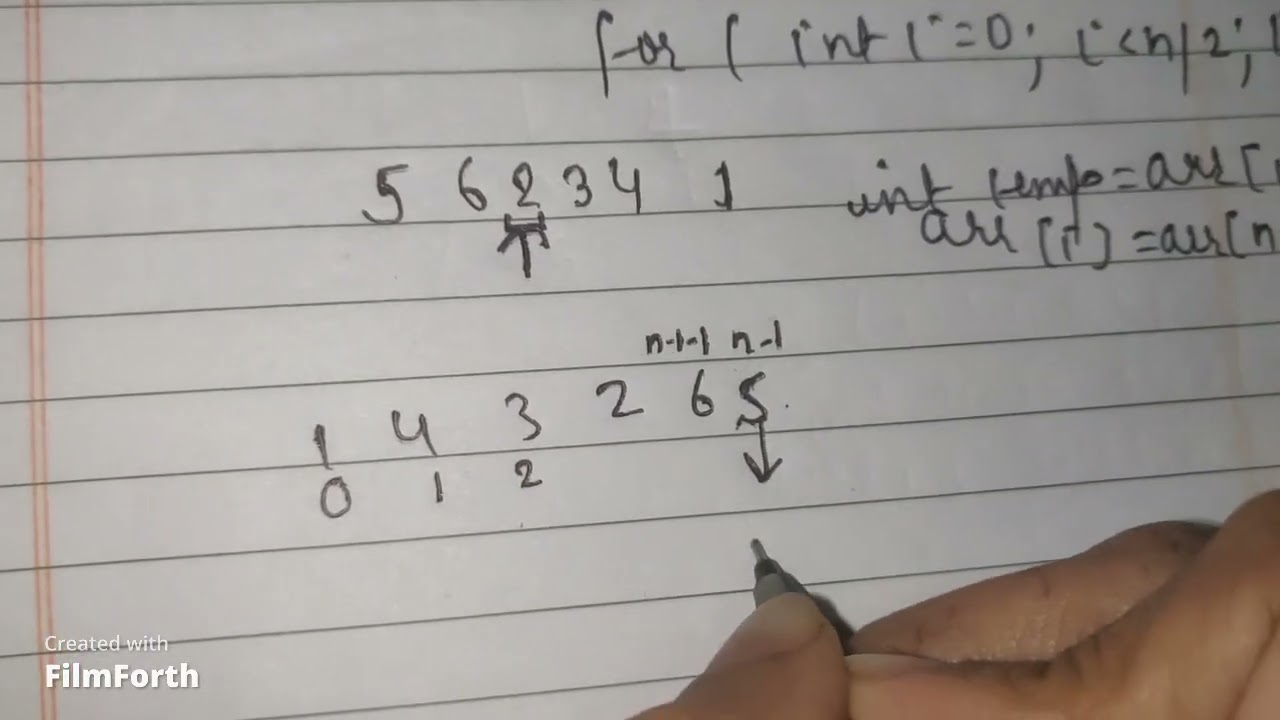 for ( int i=0; i<n/2;
5 6 2 3 4 1
int temp=arr[i
arr[i]=arr[n
n-1-1 n-1
1 4 3 2 6 5
0 1 2
Created with
FilmForth